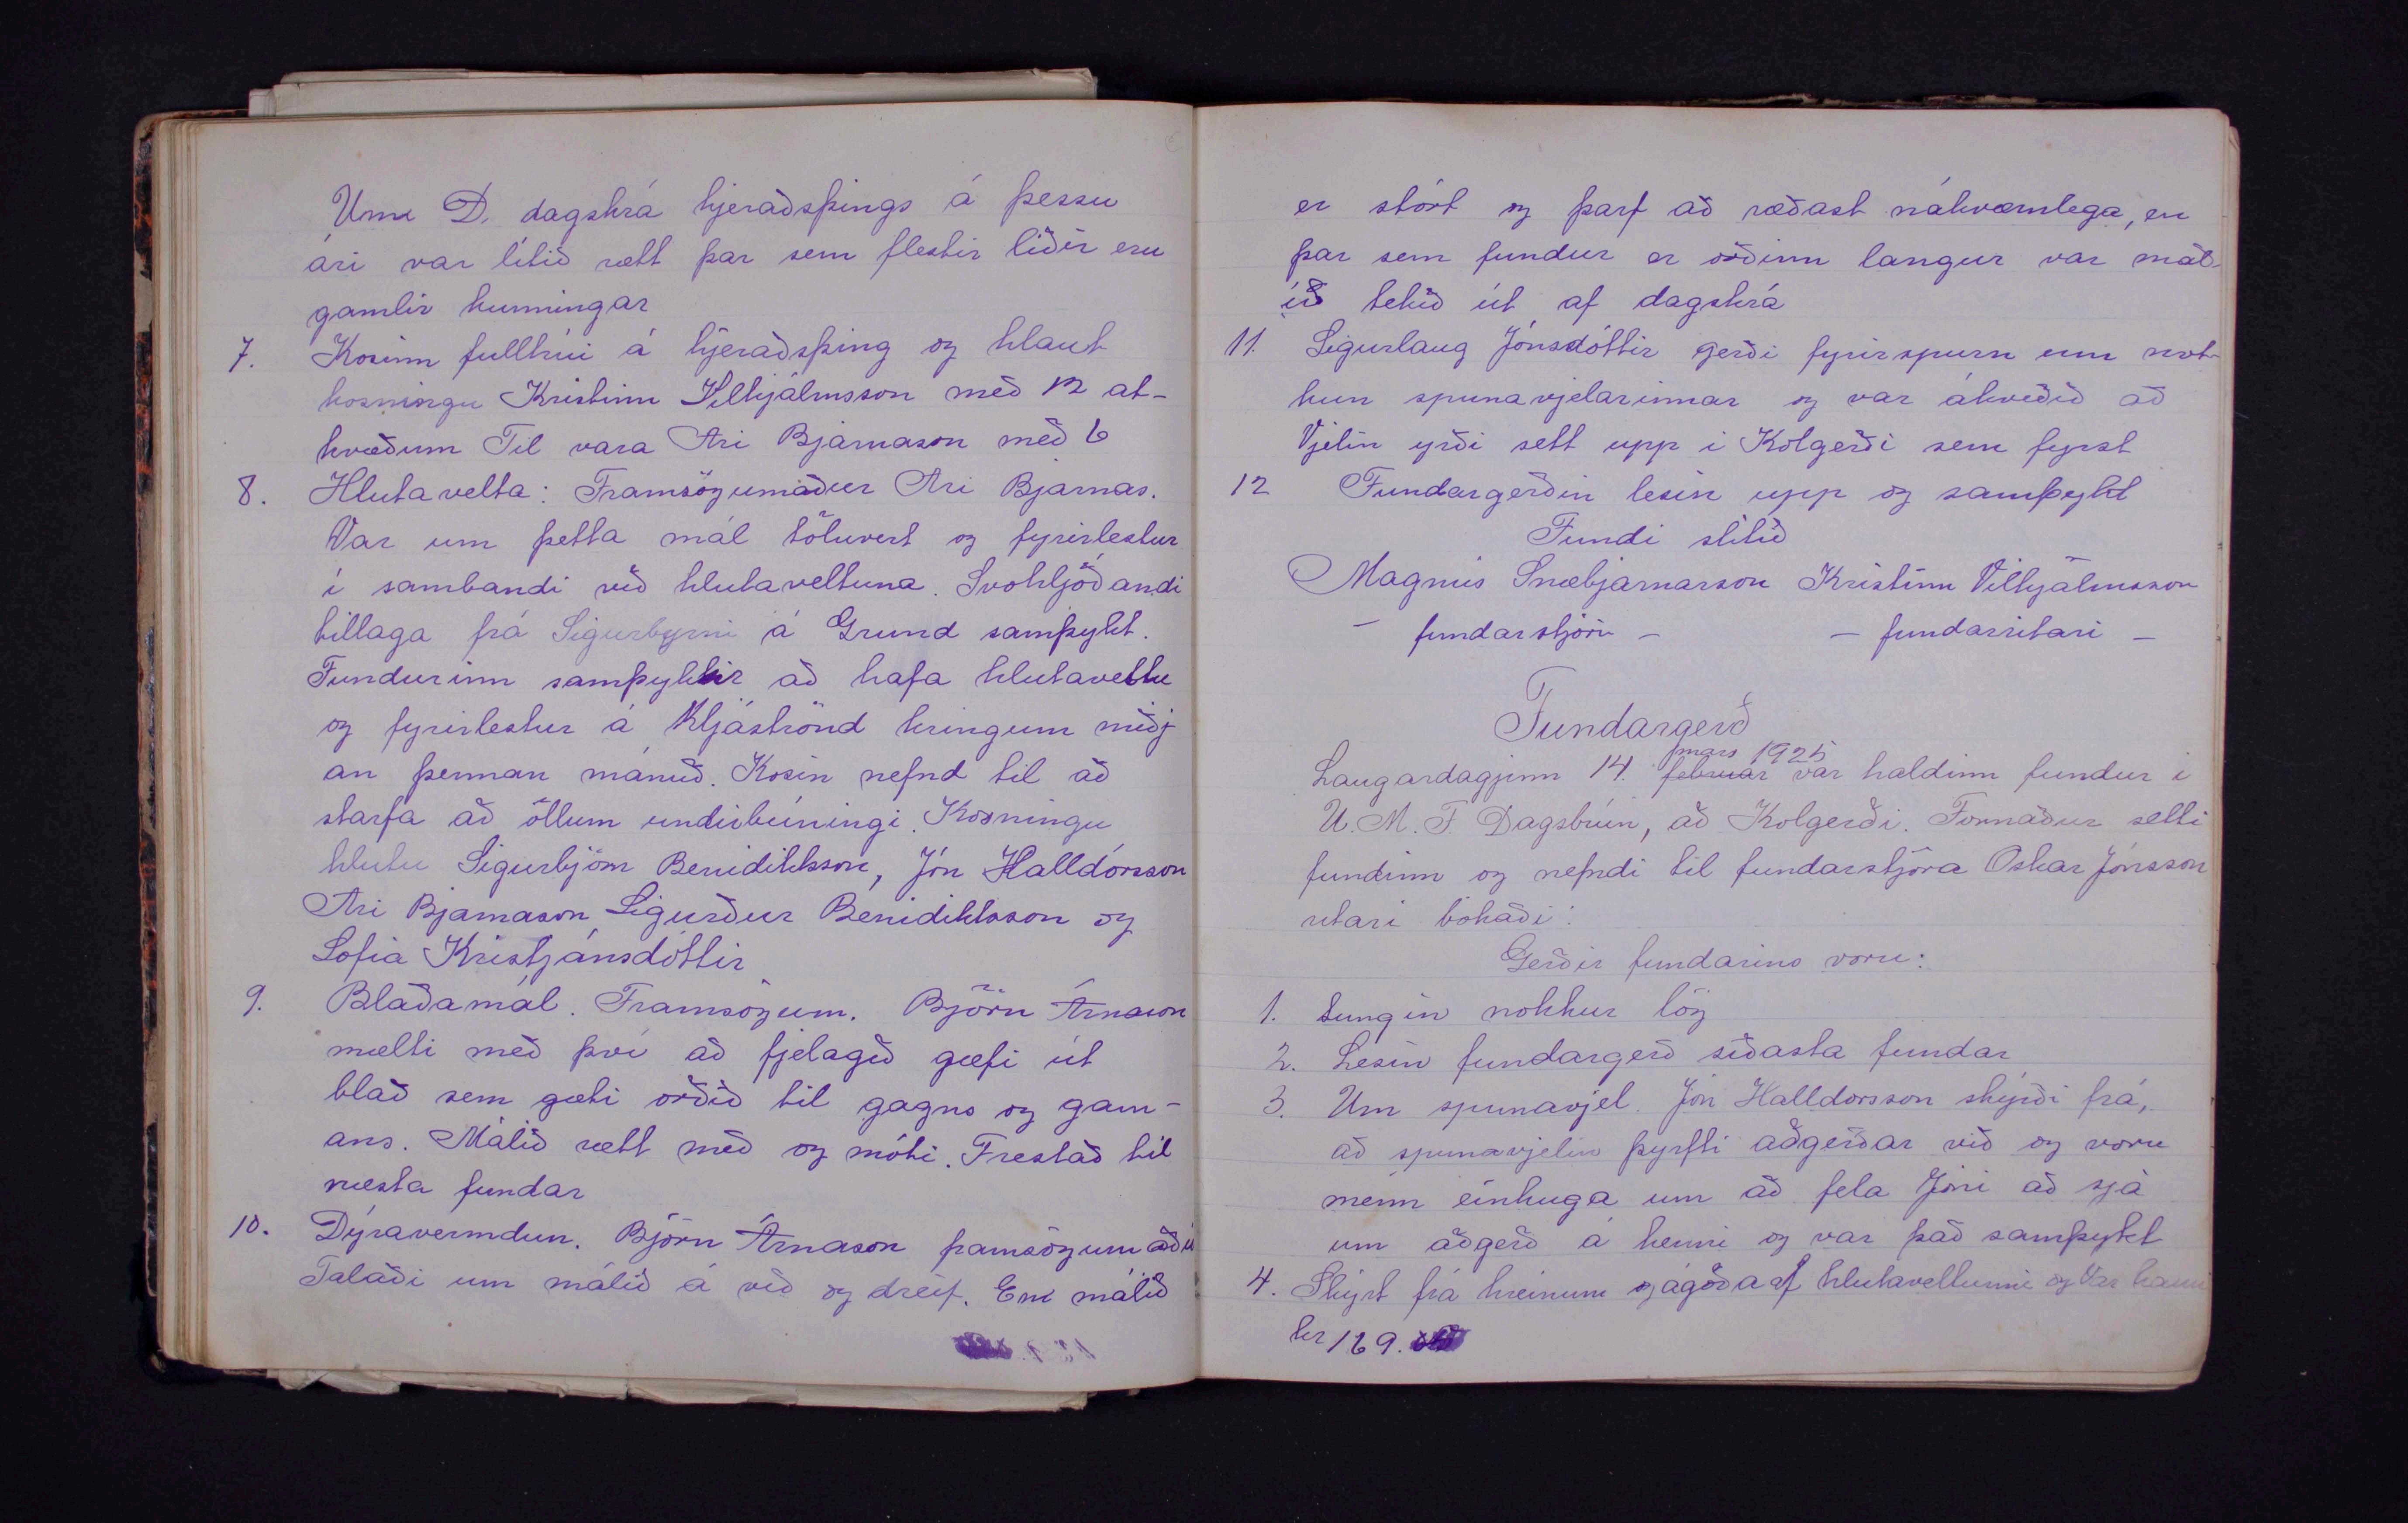 Um D. dagskrá hjeraðsþings á þessu
ári var lítið rætt þar sem flestir liðir eru
gamlir kunningar
7. Kosinn fulltrúi á hjeraðsþing og hlaut
kosningu Kristinn Vilhjálmsson með 12 at-
kvæðum Til vara Ari Bjarnason með 6
8. Hlutavelta: Framsögumaður Ari Bjarnas.
Var um þetta mál töluvert og fyrirlestur
í sambandi við hlutaveltuna. Svohljóðandi
tillaga frá Sigurbyrni á Grund samþykt.
Fundurinn samþykkir að hafa hlutaveltu
og fyrirlestur á Kljáströnd kringum miðj
an þennan mánuð. Kosin nefnd til að
starfa að öllum undirbúningi. Kosningu
hlutu Sigurbjörn Benidiktsson, Jón Halldórsson
Ari Bjarnason Sigurður Benidiktsson og
Sofia Kristjánsdóttir
9. Blaðamál. Framsögum. Björn Árnason
mælti með því að fjelagið gæfi út
blað sem gæti orðið til gagns og gam-
ans. Málið rætt með og móti. Frestað til
næsta fundar
10. Dýravermdun. Björn Árnason framsögumaður
Talaði um málið á við og dreif. En málið
er stórt og þarf að ræðast nákvæmlega, en
þar sem fundur er orðinn langur var mál-
ið tekið út af dagskrá
11. Sigurlaug Jónsdóttir gerði fyrirspurn um not-
kun spunavjelarinnar og var ákveðið að
Vjelin yrði sett upp i Kolgerði sem fyrst
12 Fundargerðin lesin upp og samþykt
Fundi slitið
Magnús Snæbjarnarson Kristinn Vilhjálmsson
- fundarstjóri - - fundarritari -
Fundargerð
mars 1925
Laugardagjinn 14. februar var haldinn fundur i
U. M. F. Dagsbrún, að Kolgerði. Formaður setti
fundinn og nefndi til fundarstjóra Oskar Jónsson
ritari bókaði:
Gerðir fundarins voru:
1. Sungin nokkur lög
2. Lesin fundargerð síðasta fundar
3. Um spunavjel. Jón Halldorsson skýrði frá,
að spunavjelin þyrfti aðgerðar við og voru
menn einhuga um að fela Jóni að sjá
um aðgerð á henni og var það samþykt
4. Skýrt frá hreinum ágóða af hlutaveltunni og var hann
kr 169.